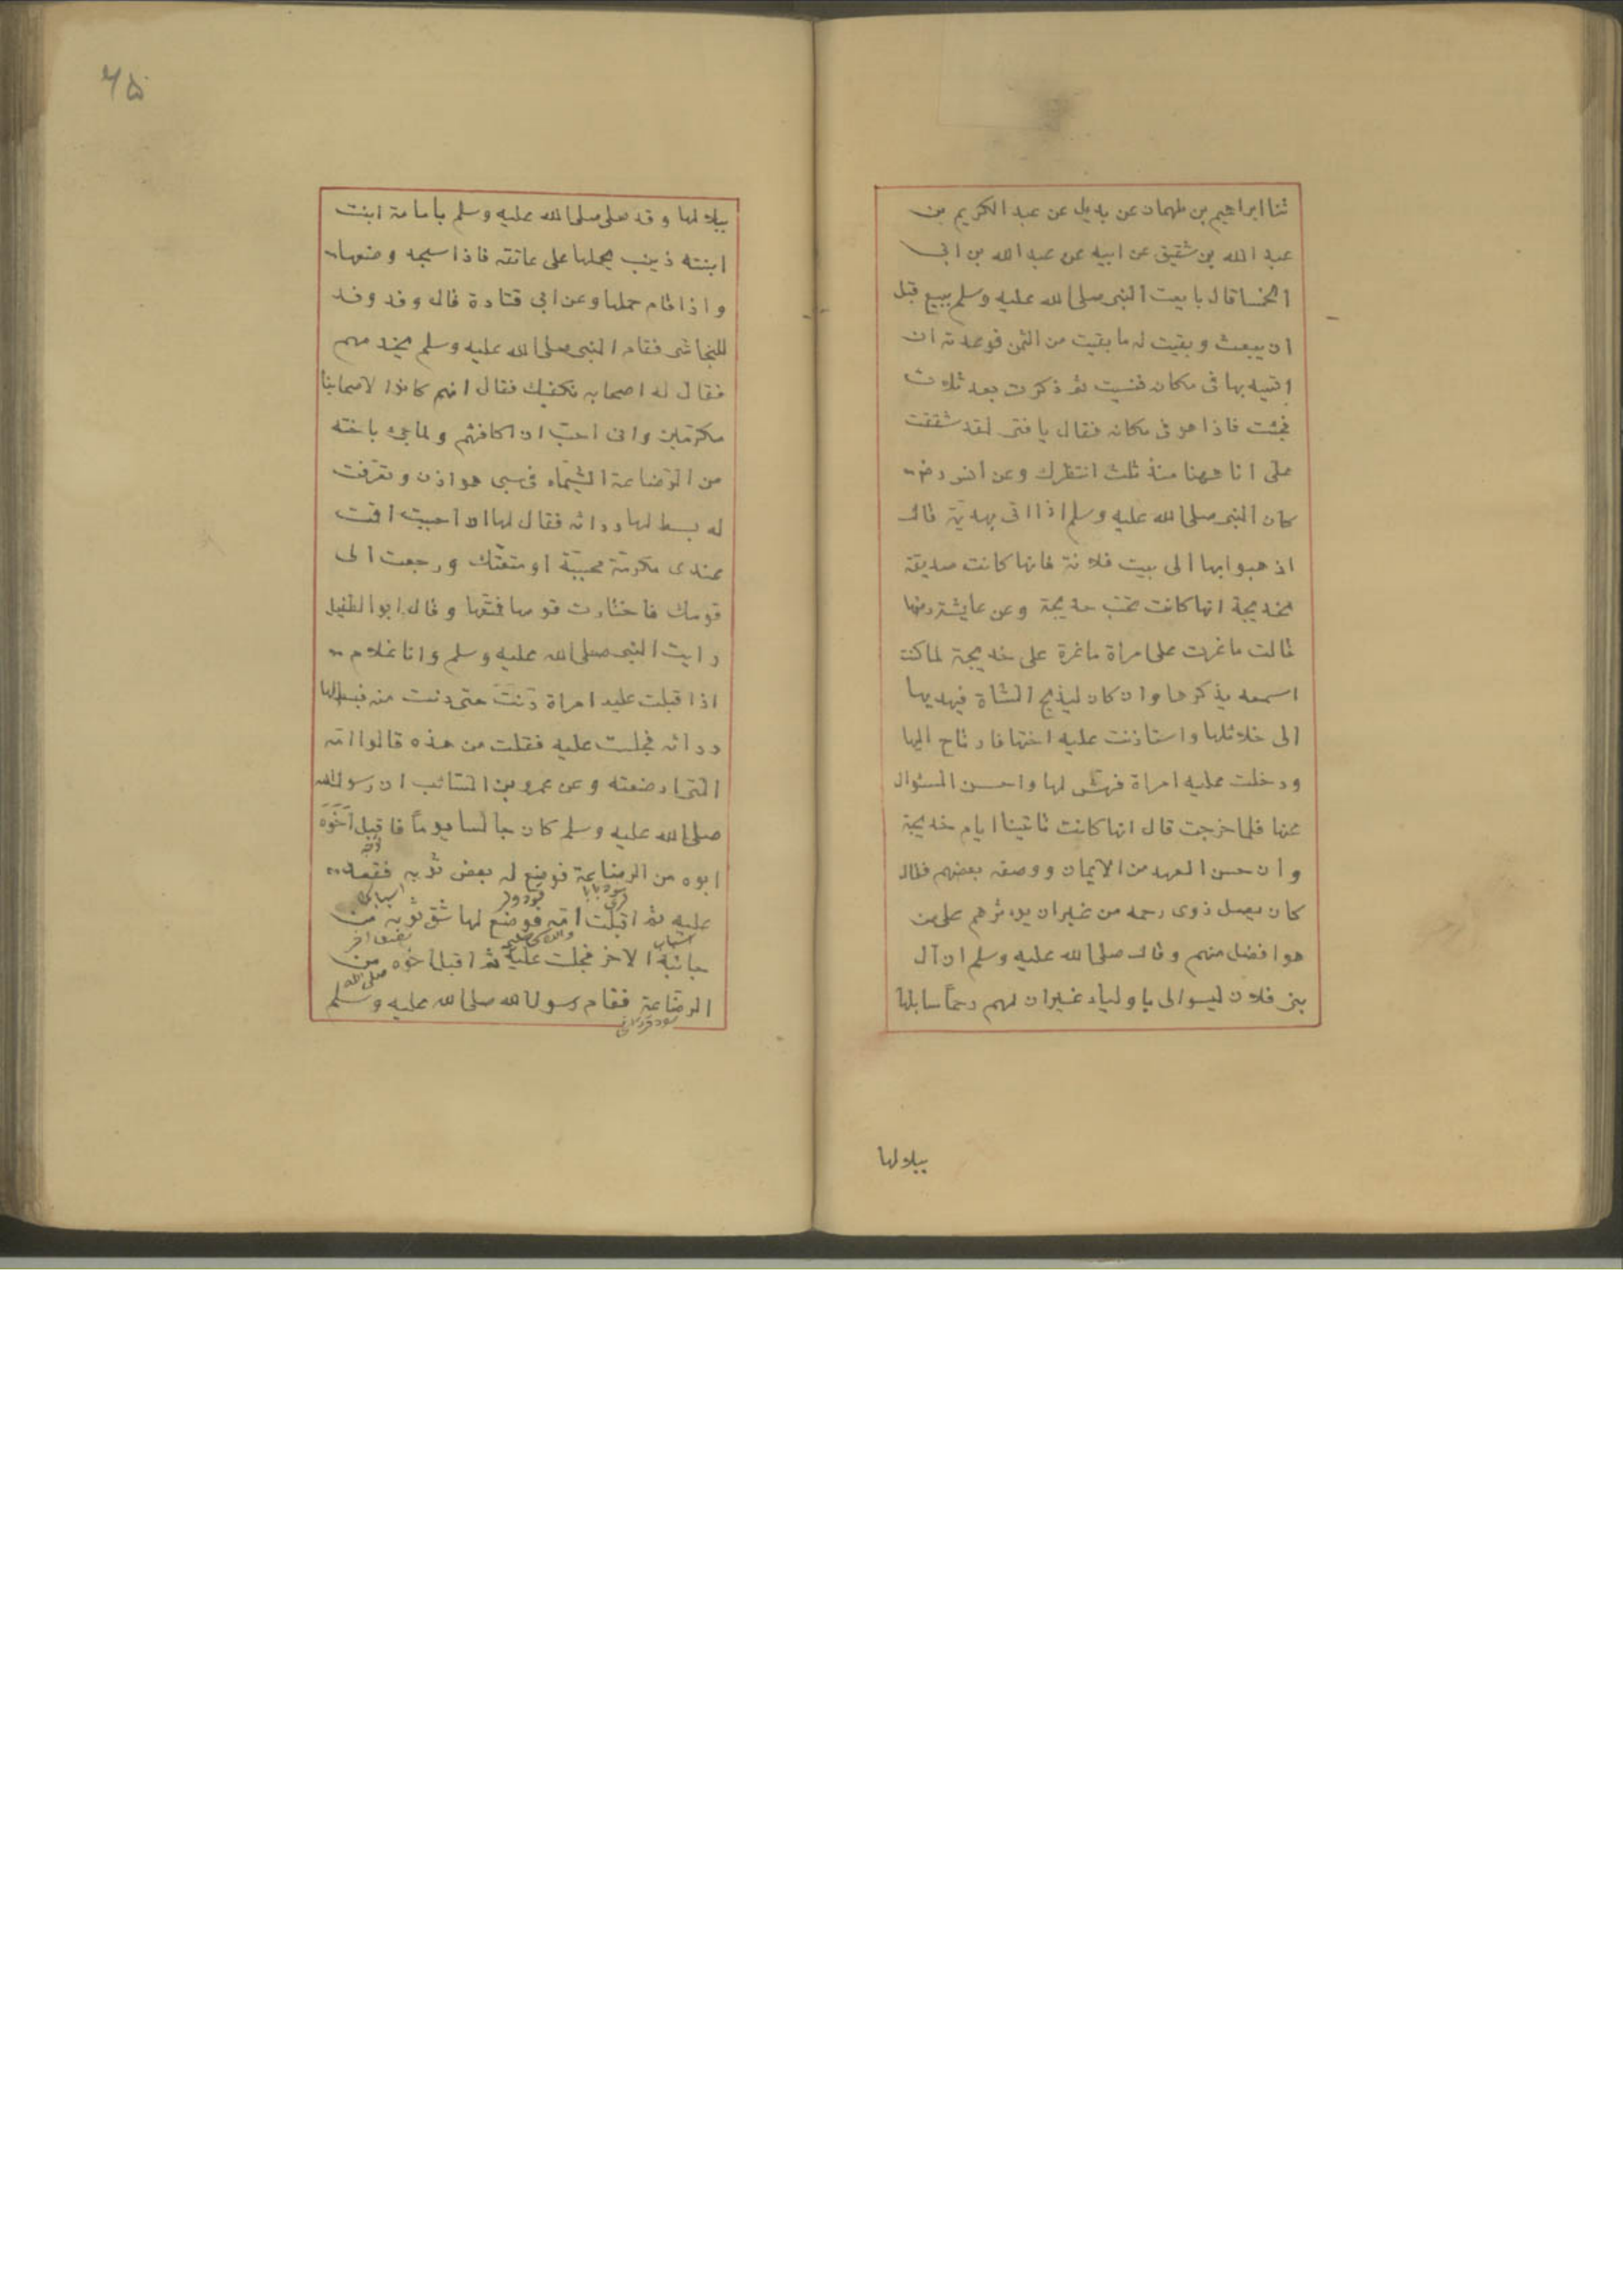 ثنا ابراهيم بن طهمان عن بديل عن عبد الكريم بن
عبد الله بن شقيق عن ابيه عن عبد الله بن ابى
الخمسا قال بايعت النبى صلى الله عليه وسلم ببيع قبل
ان يبعث وبقيت له ما بقيت من الثمن فوعدته ان
اتيه بها فى مكانه فنسيت ثم ذكرت بعد ثلاث
فجئت فاذا هو فى مكانه فقال يا فتى لقد شققت
على انا ههنا منذ ثلث انتظرك وعن انس رضـ
كان النبى صلى الله عليه وسلم اذا اتى بهدية قال
اذهبوا بها الى بيت فلانة فانها كانت صديقة
لخديجة انها كانت تحب خديجة وعن عايشة رضها
قالت ما غرت على امراة ما غرة على خديجة لما كنت
اسمعه يذكرها وان كان ليذبح الشاة فيهديها
الى خلائلها واستاذنت عليه اختها فارتاح اليها
ودخلت عليه امراة فهش لها واحسن السؤال
عنها فلما خرجت قال انها كانت تاتينا ايام خديجة
وان حسن العهد من الايمان ووصفه بعضهم فقال
كان يصل ذوى رحمه من غير ان يوثرهم على من
هو افضل منهم وقال صلى الله عليه وسلم ان آل
بنى فلان ليسوا لى باولياء غير ان لهم رحماً سابلها
ببلالها
٦٥
ببلالها وقد صلى صلى الله عليه وسلم بامامة ابنت
ابنته زينب يحملها على عاتقه فاذا سجد وضعها
واذا قام حملها وعن ابى قتادة قال وفد وفد
للنجاشى فقام النبى صلى الله عليه وسلم يخدمهم
فقال له اصحابه نكفيك فقال انهم كانوا لاصحابنا
مكرمين وانى احبّ ان اكافئهم ولما جئ باخته
من الرّضاعة الشيّماء فى سبى هوازن وتعرّفت
له بسط لها ردائه فقال لها ان احببت اقمت
عندى مكرمّة محببّة او متعتّك ورجعت الى
قومك فاختارت قومها فمتّعها وقال ابو الطفيل
رايت النبى صلى الله عليه وسلم وانا غلام
اذا قبلت عليه امراة دَنَتَ حتى دنت منه فبسط لها
ردائه فجلست عليه فقلت من هذه قالوا امّه
التى ارضعته وعن عمرو بن السّائب ان رسول الله
صلى الله عليه وسلم كان جالسا يوماً فاقبل اخَوَه
ابوه من الرضاعة فوضع له بعض ثوبه فقعد
عليه ثم اقبلت امّه فوضع لها شق ثوبه من
جانبه الاخر فجلست عليه ثم اقبل اخوه من
الرضّاعة فقام رسول الله صلى الله عليه وسلم